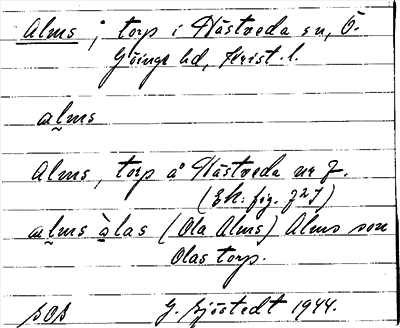 Alms, torp i Hästveda sn, Ö.
Göinge hd, Krist. l.
alms
Alms, torp å Hästveda nr 7.
(Ek: frg. 727)
alms àlas (Ola Alms) Alms son
Olas torp.
G. Sjöstedt 1944.